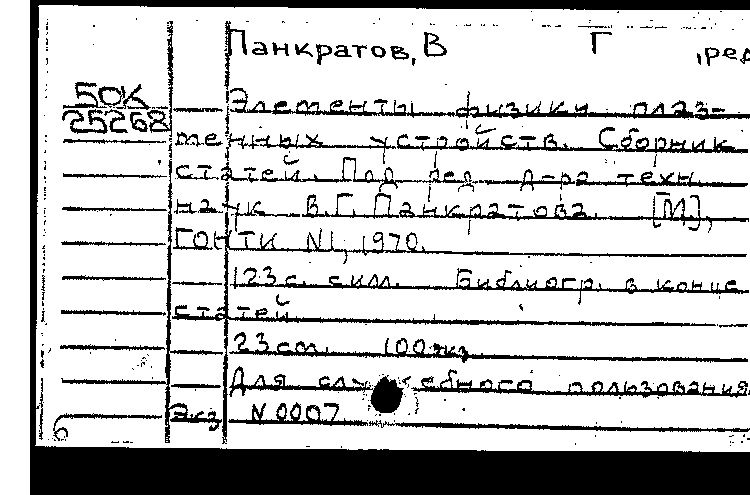 Панкратов, В Г , ред
50К
25268
Элементы физики плаз-
менных устройств. Сборник
статей. Под ред. д-ра техн.
наук В.Г. Панкратова. [М],
ГОНТИ N1, 1970.
123 с. с илл. Библиогр. в конце
статей.
23 см. 100 экз.
Для служебного пользования
Экз N 0007